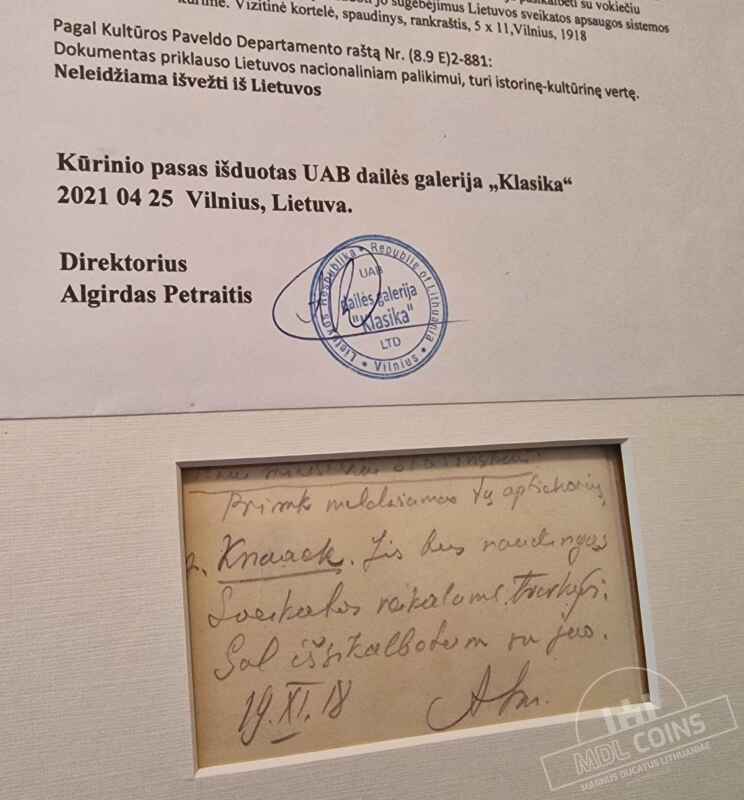 jo sugebėjimus Lietuvos sveikatos apsaugos sistemos
kūrime. Vizitinė kortelė, spaudinys, rankraštis, 5 x 11,Vilnius, 1918
Pagal Kultūros Paveldo Departamento raštą Nr. (8.9 E)2-881:
Dokumentas priklauso Lietuvos nacionaliniam palikimui, turi istorinę-kultūrinę vertę.
Neleidžiama išvežti iš Lietuvos
Kūrinio pasas išduotas UAB dailės galerija „Klasika“
2021 04 25 Vilnius, Lietuva.
Direktorius
Algirdas Petraitis
Lietuvos Respublika • Republic of Lithuania • Vilnius •
UAB
dailės galerija
"Klasika"
LTD
Priimk meldžiamas
Knaack. Jis bus naudingas
Sveikatos reikalams tvarkyti.
išsikalbėtum su juo.
19.XI.18
MDL COINS
MAGNUS DUCATUS LITHUANIAE